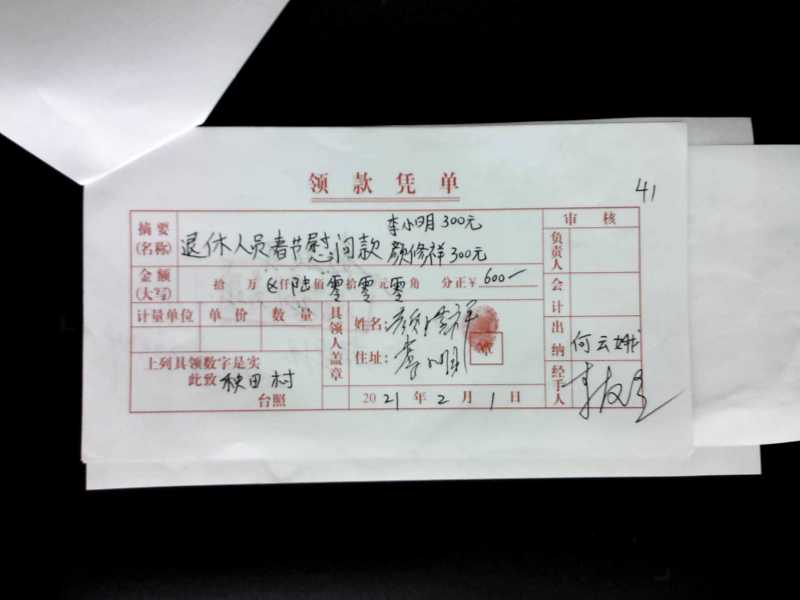 领款凭单
41
摘要(名称) 退休人员春节慰问款 李小明300元 颜修祥300元
审核
负责人
金额(大写) 拾万 仟陆佰零拾零元零角 分正￥600—
会计
计量单位 单价 数量
具领人盖章
姓名: 颜修祥
住址: 李小明
出纳 何云娥
上列具领数字是实
此致 秧田村
台照
2021年2月1日
经手人